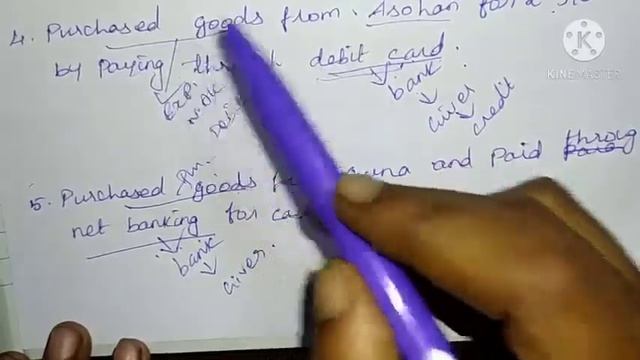 4. Purchased goods from Asohan for
by paying through debit card.
Exp. bank
N.A/c giver
Debit credit
5. Purchased goods and paid throug
net banking for
bank
Giver.
KINEMASTER